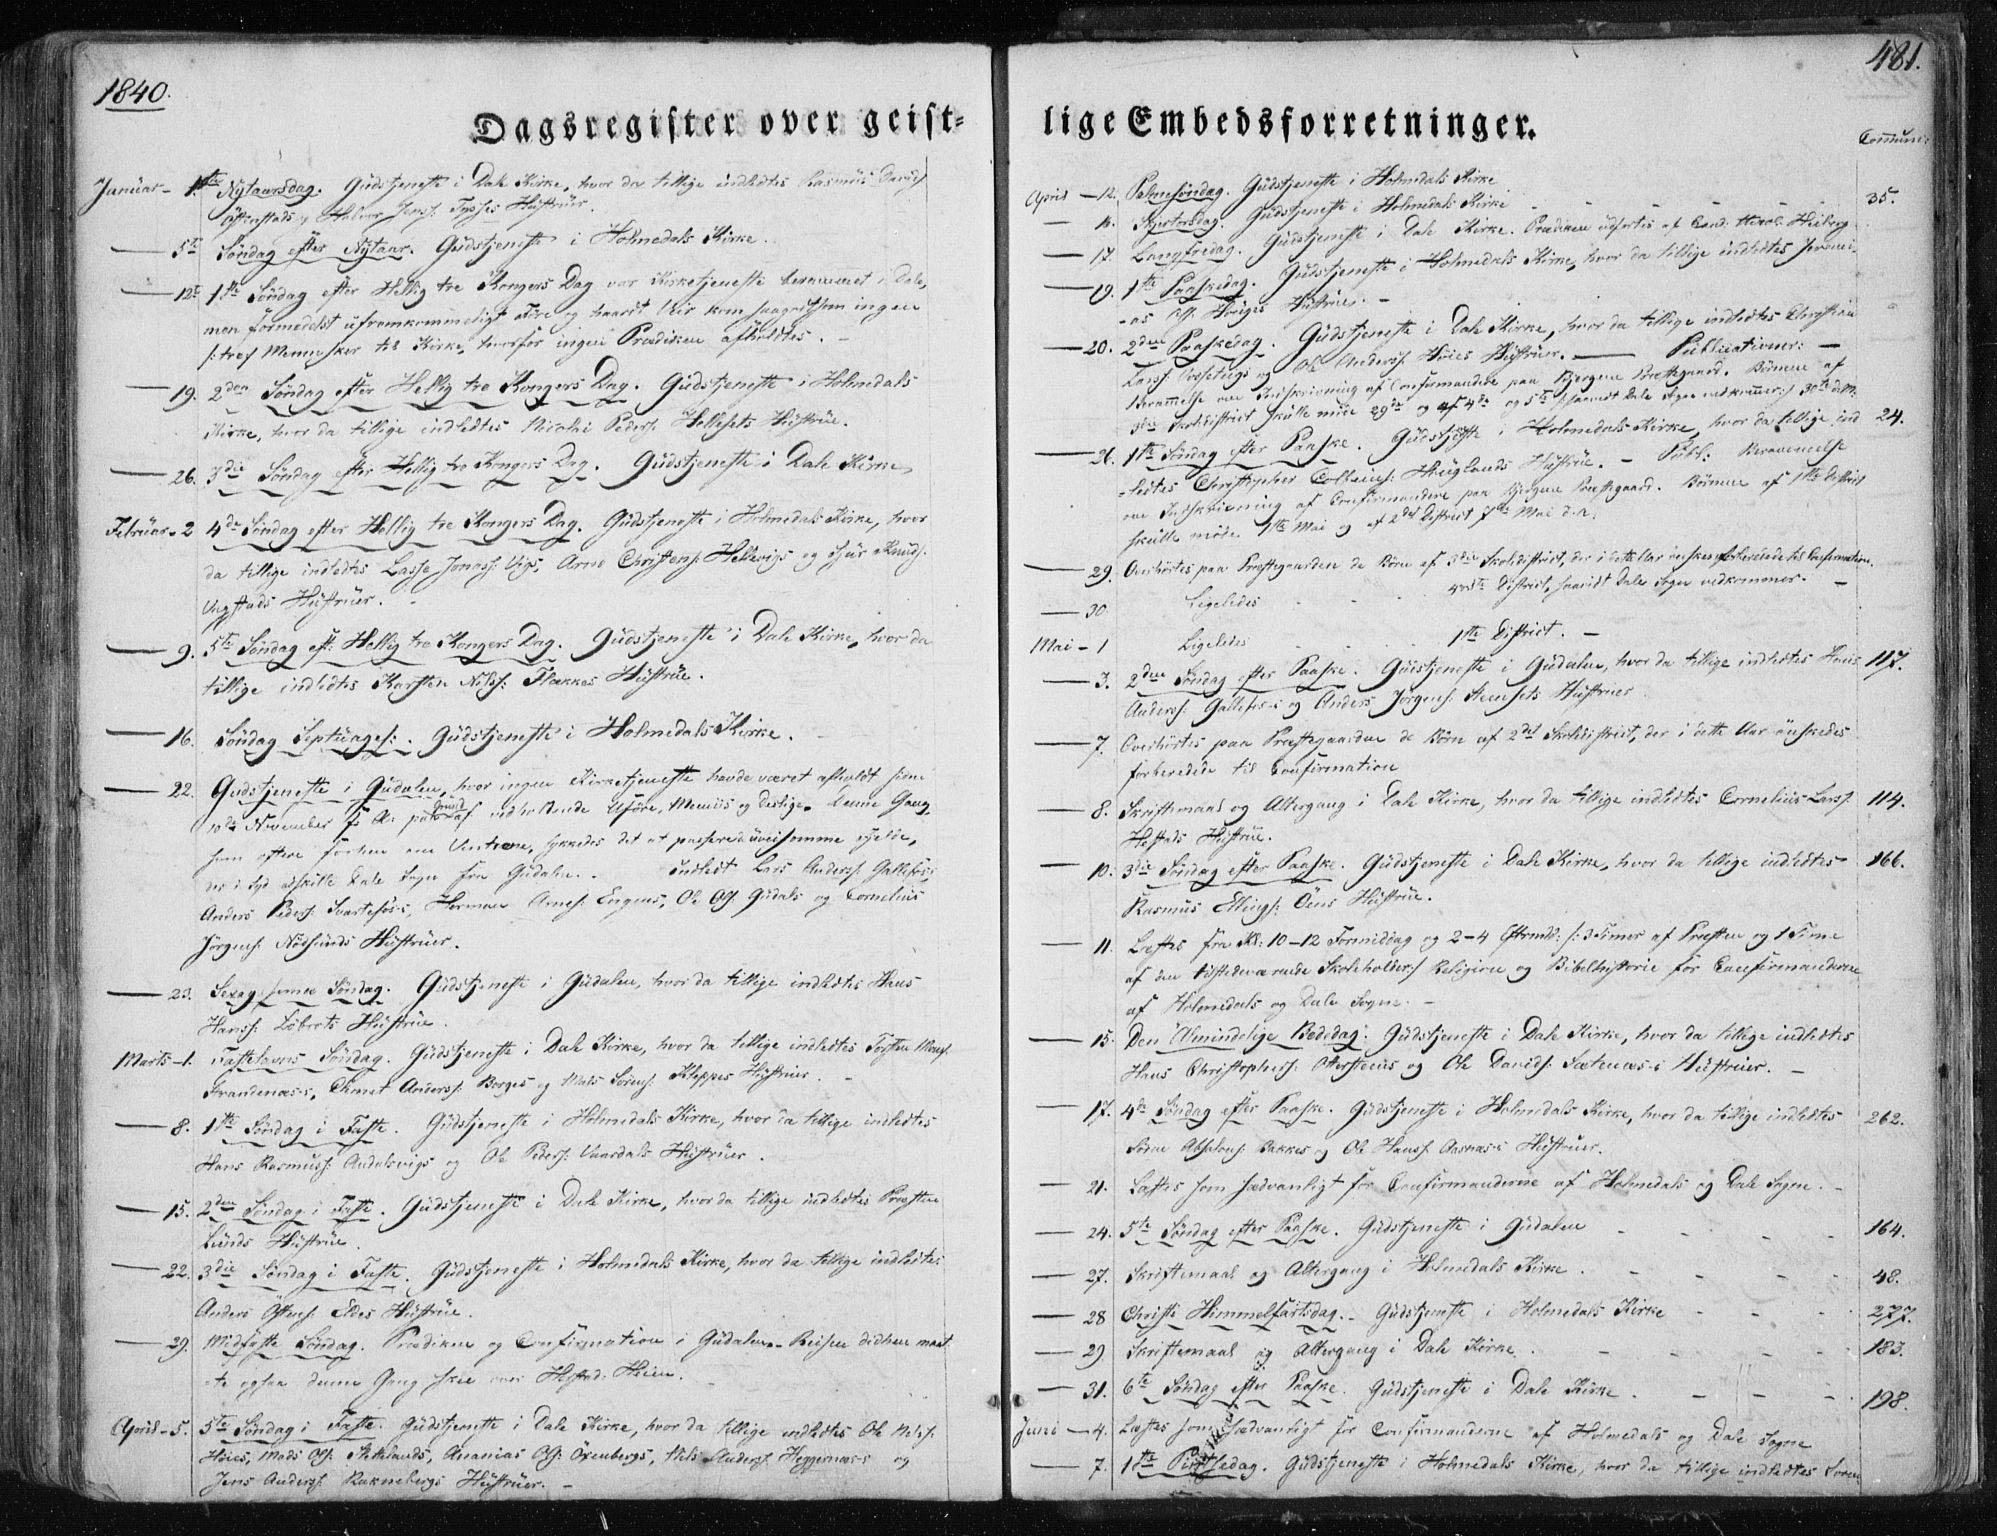 1840.
Dagsregister over geist-
Januar - 1ste Nytaarsdag. Gudstjeneste i Dale Kirke, hvor da tillige indledtes Rasmus Davids:
Jens: Tysses Hustruer.
5te Søndag efter Nytaar. Gudstjeneste i Holmedals Kirke.
12te 1ste Søndag efter Hellig tre Kongers Dag var Kirketjeneste berammet i Dale,
men formedelst ufremkommeligt Føre og haardt Veir kom saagodtsom ingen
/: tre :/ Mennesker til Kirke, hvorfor ingen Prædiken afholdtes. -
19. 2den Søndag efter Hellig tre Kongers Dag. Gudstjeneste i Holmedals
Kirke, hvor da tillige indledtes Nicolai Peders: Hellesets Hustrue.
26. 3die Søndag efter Hellig tre Kongers Dag. Gudstjeneste i Dale Kirke
Februar - 2 4de Søndag efter Hellig tre Kongers Dag. Gudstjeneste i Holmedals Kirke, hvor
da tillige indledtes Lasse Jonas: Vigs, Arne Christens: Hellevigs og Sjur Knuds:
Hustruer. -
9. 5te Søndag eft: Hellig tre Kongers Dag. Gudstjeneste i Dale Kirke, hvor da
tillige indledtes Karsten Nils: Flækkes Hustrue.
16. Søndag Septuages:. Gudstjeneste i Holmedals Kirke.
22. Gudstjeneste i Gudalen, hvor ingen Kirketjeneste havde været afholdt siden
10de November f: A: paa Grund af vedholdende Uføre, og deslige. Denne Gang,
som oftere forhen om Vinteren, lykkedes det at passere uveisomme Fjelde,
der i Syd adskille Dale Sogn fra Gudalen. - Indledt Lars Anders: Gallefos-s,
Anders Peders: Svartefos-s, Herman Arnes: Engens, Ole Ols: Gudals og Cornelius
Jørgens: Nødsunds Hustruer.
23. Søndag. Gudstjeneste i Gudalen, hvor da tillige indledtes Hans
Hans: Løbrots Hustrue.
Marts - 1. Fastelavns Søndag. Gudstjeneste i Dale Kirke, hvor da tillige indledtes Torsten Mons:
Strandenæs-s, Anders: Borges og Mads Sørens: Kleppes Hustruer. -
8. 1ste Søndag i Faste. Gudstjeneste i Holmedals Kirke, hvor da tillige indledtes
Hans Rasmus: Andalsvigs og Ole Peders: Vaardals Hustruer.
15. 2den Søndag i Faste. Gudstjeneste i Dale Kirke, hvor da tillige indledtes Præsten
Lunds Hustrue.
22. 3die Søndag i Faste. Gudstjeneste i Holmedals Kirke, hvor da tillige indledtes
Anders Østens: Eldes Hustrue.
29. Midfaste Søndag. Prædiken og Confirmation i Gudalen. Reisen didhen maat
-te ogsaa denne Gang skee over Hestad-Heien.
April - 5. 5te Søndag i Faste. Gudstjeneste i Dale Kirke, hvor da tillige indledtes Ole Nils:
Høies, Mads Ols: Ananias Ols: Oxenbergs, Nils Anders: Heggernæs-s og
Jens Anders: Raknebergs Hustruer. -
481.
lige Embedsforretninger.
Communi:
April - 12. Palmesøndag. Gudstjeneste i Holmedals Kirke
16. Skjertorsdag. Gudstjeneste i Holmedals Kirke - - - - 35.
17. Langfredag. Gudstjeneste i Dale Kirke. Prædiken udførtes af Cand: theol: Heiberg.
19. 1ste Paaskedag. Gudstjeneste i Holmedals Kirke, hvor da tillige indledtes Jeremi-
-as Ols: Hustrue. -
20. 2den Paaskedag. Gudstjeneste i Dale Kirke, hvor da tillige indledtes Christian
Lars: og Ole Anders: Høies Hustruer. - Publicationer: -
Berammelse om Indskrivning af Confirmandere paa Præstegaard. Børnene af
3die Skoledistrict skulle møde 29de og af 4de og 5te /: saavidt Dale Sogn vedkommer :/ 30te
26. 1ste Søndag efter Paaske. Gudstjeneste i Holmedals Kirke, hvor da tillige ind 24.
-ledtes Christopher Huglands Hustrue. - Publ: Berammelse
om Indskrivning af Confirmandere paa Præstegaard. Børnene af 1ste District
skulle møde 1ste Mai og af 2det District 7de Mai d. A.
29. Overhørtes paa Præstegaarden de Børn af 3die Skoledistrict, der i dette Aar ønskes forberedede til Confirmation.
30. Ligeledes - - 4 og 5te District, saavidt Dale Sogn vedkommer. -
Mai - 1 Ligeledes - - 1ste District. -
3. 2den Søndag efter Paaske. Gudstjeneste i Gudalen, hvor da tillige indledtes Hans 117.
Anders: Gallefos-s og Anders Jørgens: Hustruer
7. Overhørtes paa Præstegaarden de Børn af 2det Skoledistrict, der i dette Aar ønskedes
forberedede til Confirmation
8. Skriftemaal og Altergang i Dale Kirke, hvor da tillige indledtes Cornelius Lars: 114.
Hestads Hustrue.
10. 3die Søndag efter Paaske. Gudstjeneste i Dale Kirke, hvor da tillige indledtes 166.
Rasmus Ellings: Øens Hustrue.
11. Læstes fra Kl: 10-12 Formiddag og 2-4 Efterm: /: 3 Timer af Præsten og 1 Time
af den tilstedeværende Skoleholder :/ Religion og Bibelhistorie for Confirmanderne
af Holmedals og Dale Sogne. -
15. Den Almindelige Bededag. Gudstjeneste i Dale Kirke, hvor da tillige indledtes
Hans Christophers: Otterstens og Ole Davids: Sætenæs-s Hustruer. -
17. 4de Søndag efter Paaske. Gudstjeneste i Holmedals Kirke, hvor da tillige indledtes 262.
Søren Absalons: Bakkes og Ole Hans: Aasnæs-s Hustruer.
21. Læstes som sædvanligt for Confirmanderne af Holmedals og Dale Sogne. -
24. 5te Søndag efter Paaske. Gudstjeneste i Gudalen - - - - 164.
27. Skriftemaal og Altergang i Holmedals Kirke. - - - - 48.
28 Christi Himmelfartsdag. - Gudstjeneste i Holmedals Kirke - - - 277.
29 Skriftemaal og Altergang i Dale Kirke. - - - - 183.
31. 6te Søndag efter Paaske. Gudstjeneste i Dale Kirke. - - - - 198.
Juni - 4. Læstes som sædvanligt for Confirmanderne af Holmedals og Dale Sogne
7. 1ste Pintsedag. Gudstjeneste i Holmedals Kirke, hvor da tillige indledtes Søren